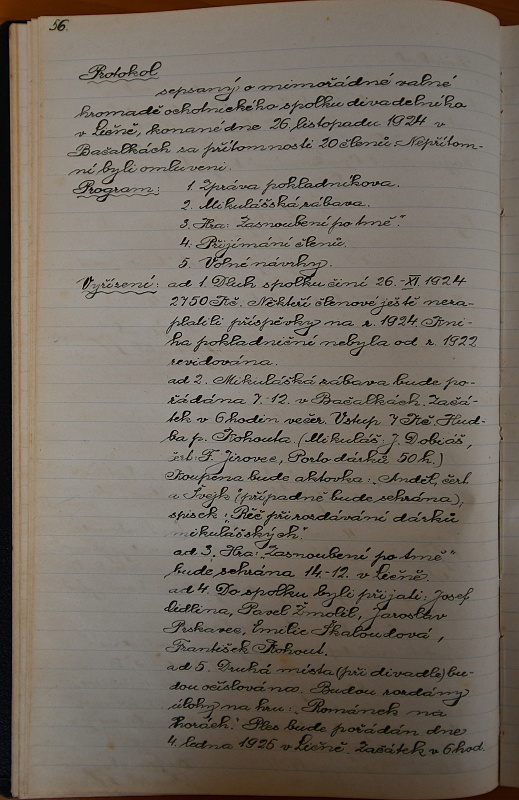 56.
Protokol
sepsaný o mimořádné valné
hromadě ochotnického spolku divadelního
v Lično, konané dne 26. listopadu 1924 v
Bačalkách za přítomnosti 20 členů - Nepřítom-
ní byli omluveni.
Program: 1. Zpráva pokladníkova.
2. Mikulášská zábava.
3. Hra: „Zasnoubení po tmě".
4. Přijímání členů.
5. Volné návrhy.
Vyřízení: ad 1. Dluh spolku činí 26.-XI. 1924
2750 Kč. Někteří členové ještě neza-
platili příspěvky na r. 1924. Kni-
ha pokladniční nebyla od r. 1922
revidována.
ad 2. Mikulášká zábava bude po-
řádána 7.-12. v Bačalkách. Začá-
tek v 6 hodin večer. Vstup 7 Kč. Hud-
ba p. Kohouta. (Mikuláš: J. Dobiáš,
čert F. Jirovec, Porto dárků 50 h.)
Koupena bude aktovka: „Anděl, čert
a Švejk (případně bude sehrána),
spisek: „Řeč při rozdávání dárků
mikulášských".
ad 3. Hra: „Zasnoubení po tmě"
bude sehrána 14.-12. v Ličně.
ad 4. Do spolku byli přijati: Josef
Ludlina, Pavel Zmolil, Jaroslav
Pskavec, Emilie Škaloudová,
František Kohout.
ad 5. Druhá místa (při divadle) bu-
dou očíslována. Budou rozdány
úlohy na hru: „Románek na
horách." Ples bude pořádán dne
4. ledna 1925 v Ličně. Začátek v 6 hod.